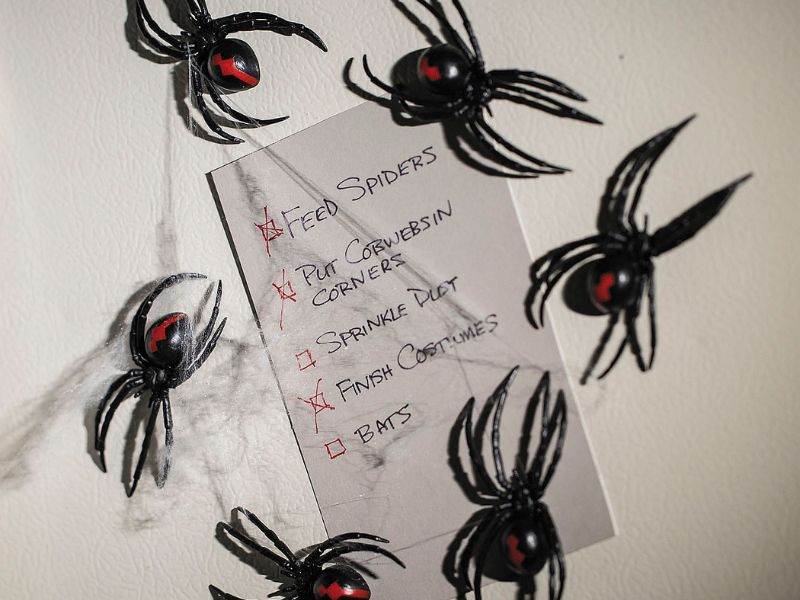 FEED SPIDERS
PUT COBWEBS IN
CORNERS
SPRINKLE DUST
FINISH COSTUMES
BATS